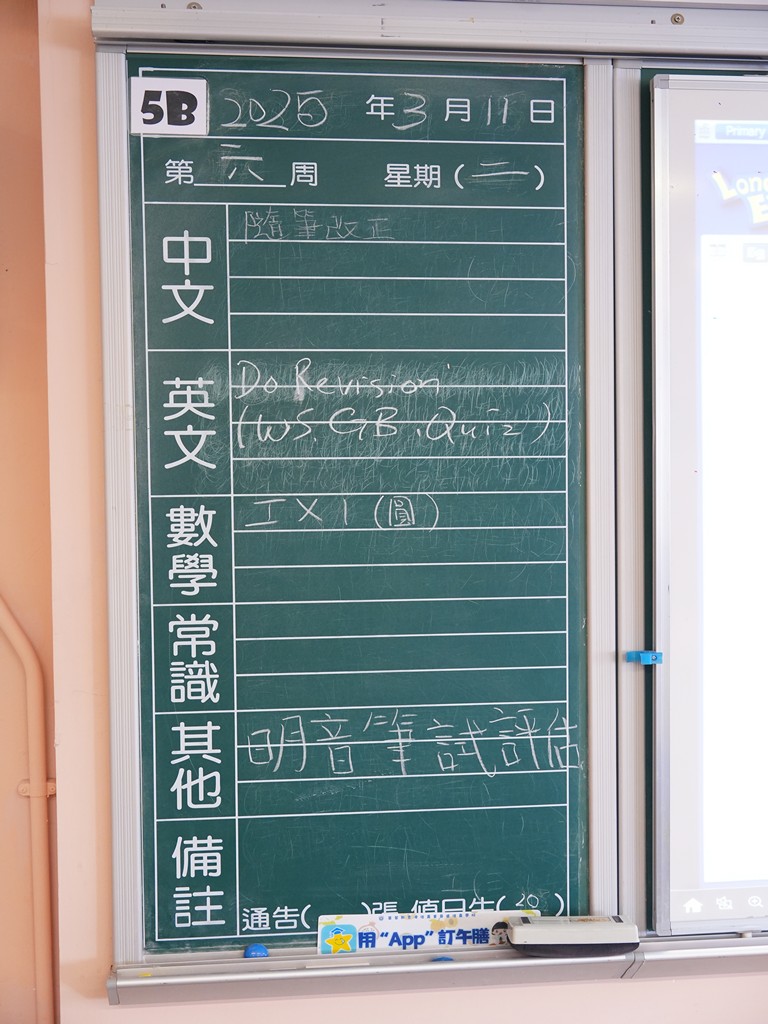 5B 2025 年 3 月 11 日
第 六 周 星期 (二)
中文
隨筆改正
英文
Do Revision
(WS. GB. Quiz)
數學
工 X 1 (圓)
常識
其他
明音筆試評估
備註
通告( )張 值日生(20)
用“App”訂午膳
Primary